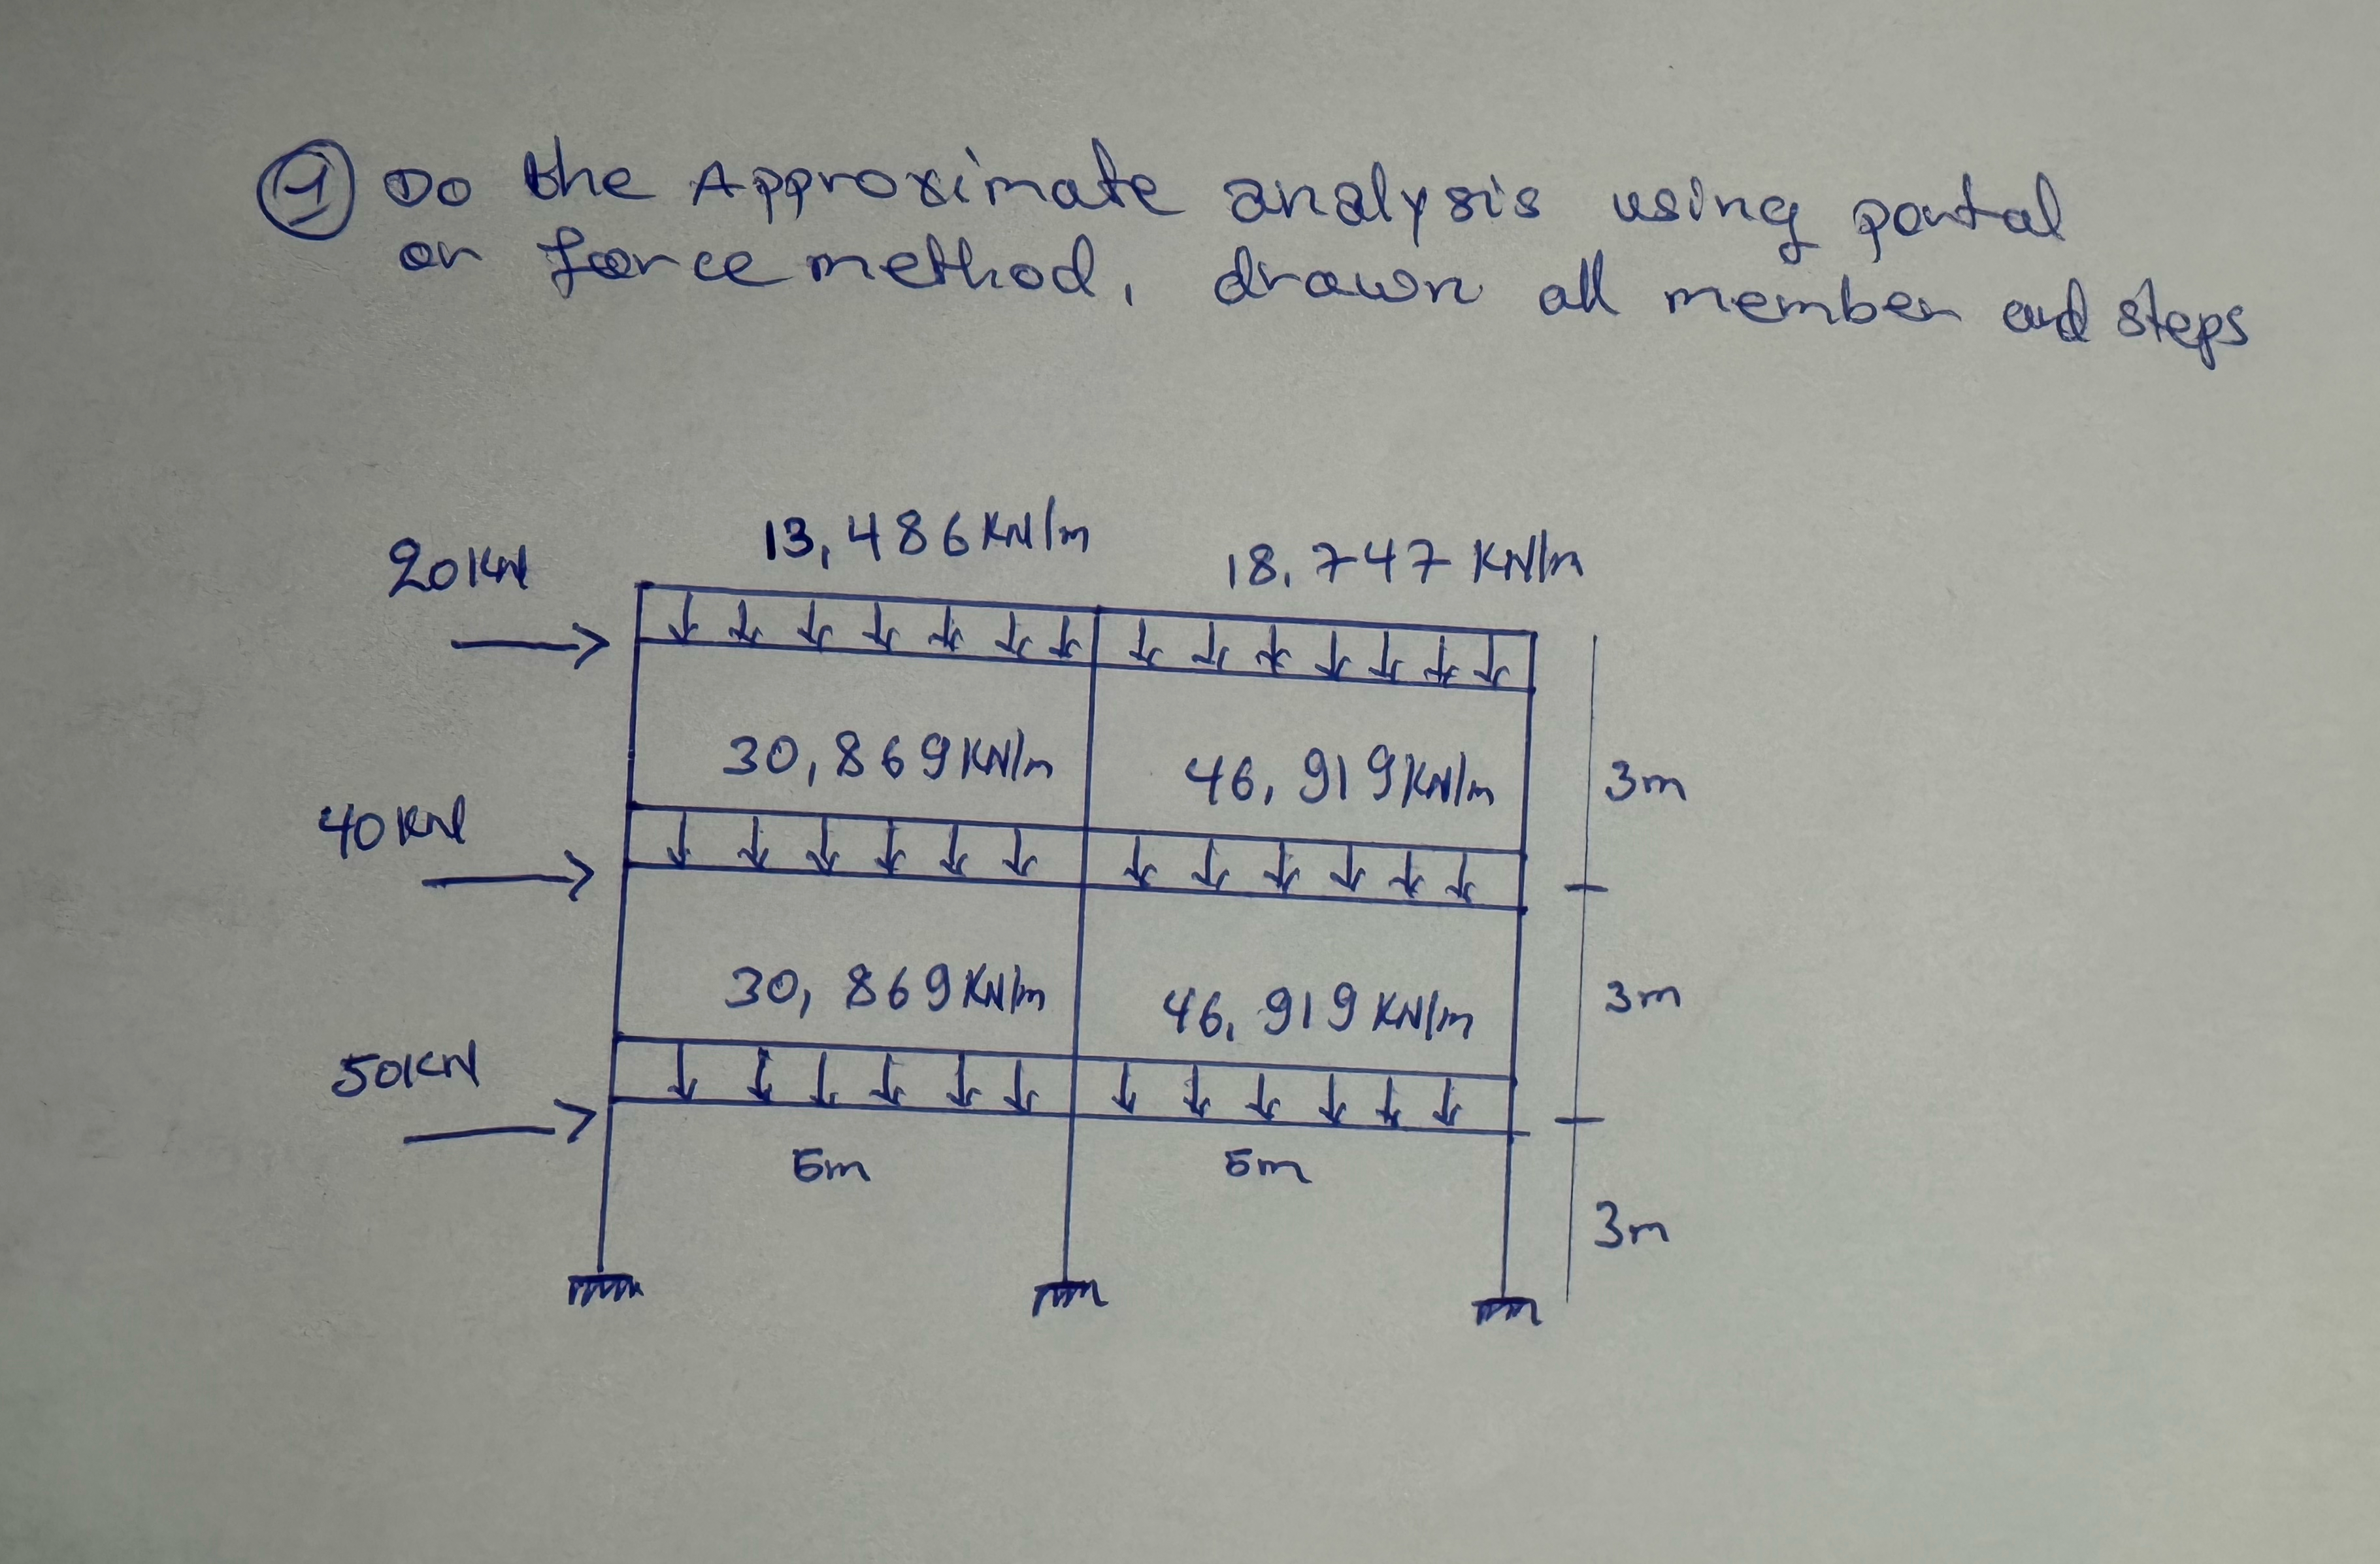 ① Do the Approximate analysis using portal
or force method, drawn all member and steps
13,486 KN/m
18,747 KN/m
20KN
30,869KN/m
46,919KN/m
3m
40KN
30,869KN/m
46,919KN/m
3m
50KN
5m
5m
3m